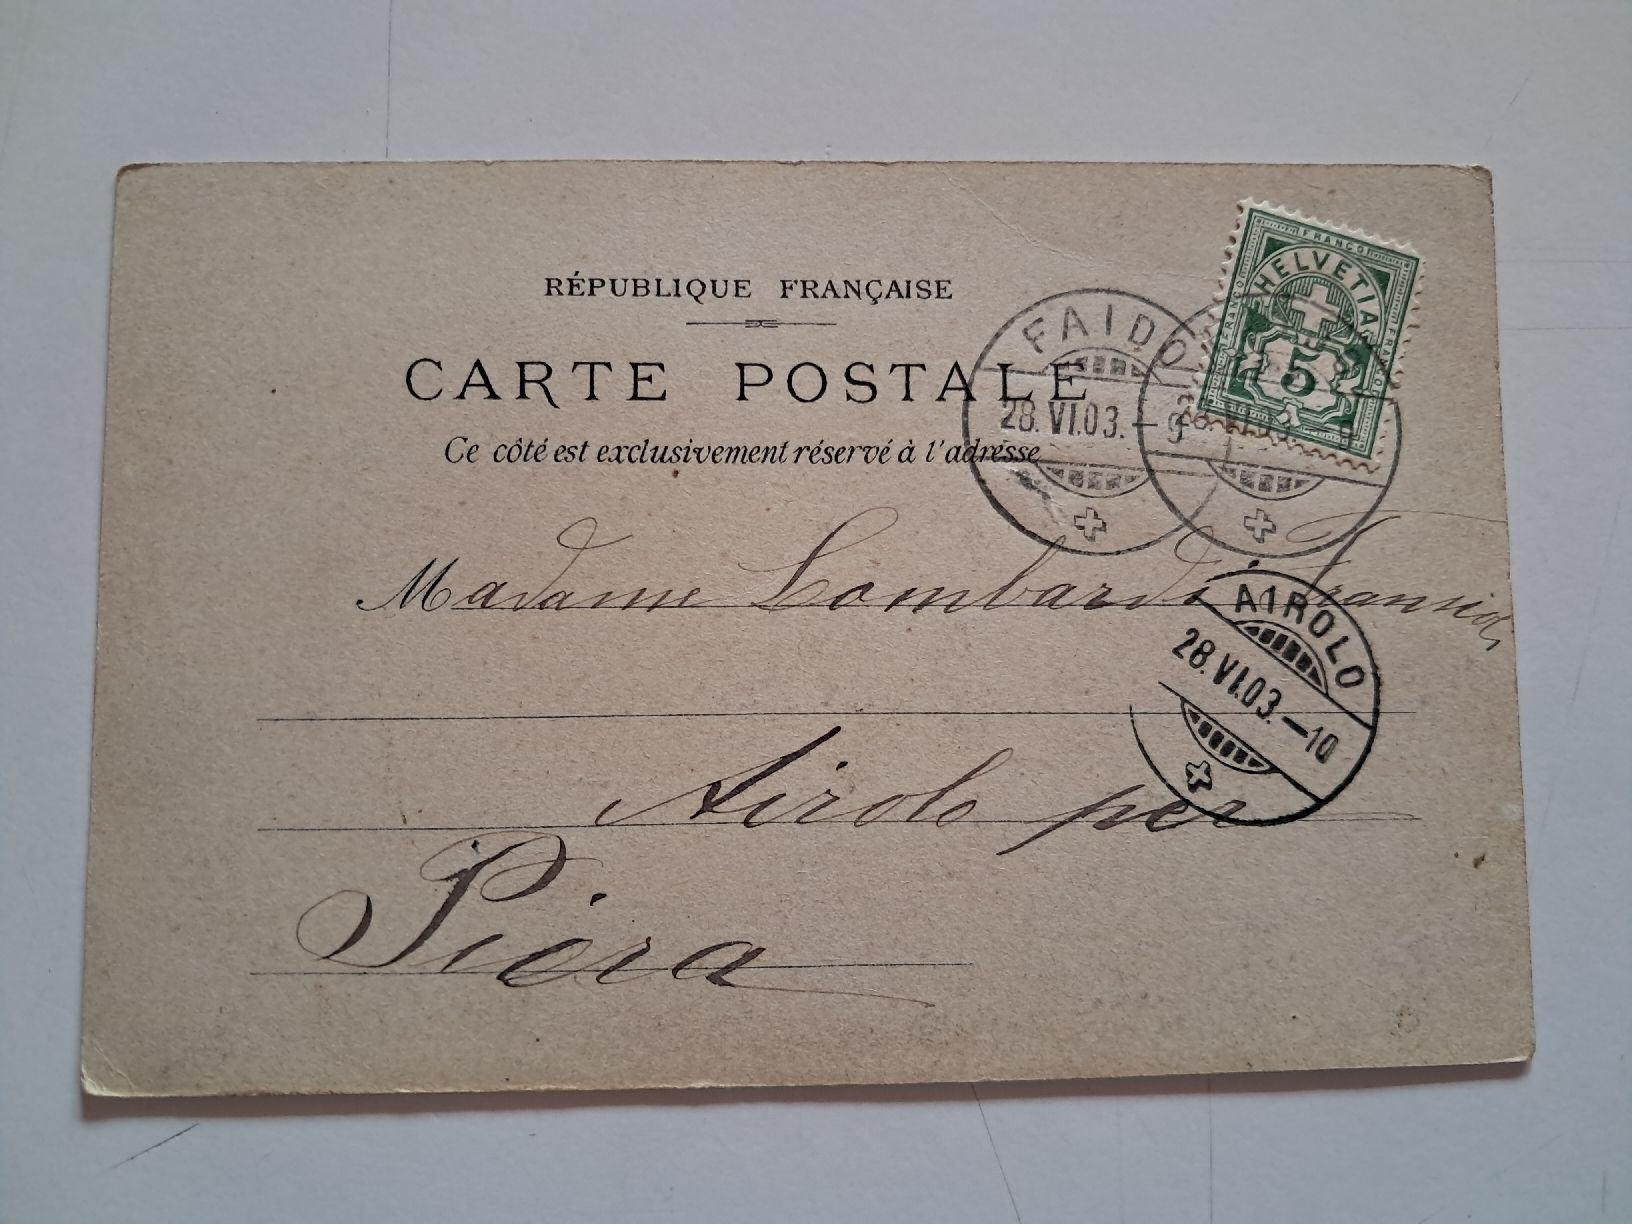 RÉPUBLIQUE FRANÇAISE
CARTE POSTALE
Ce côté est exclusivement réservé à l'adresse
FRANCO
HELVETIA
FRANCO
FRANCO
5
FAIDO
28.VI.03.-9
Madame Lombardi
AIROLO
28.VI.03.-10
Airolo per
Piora